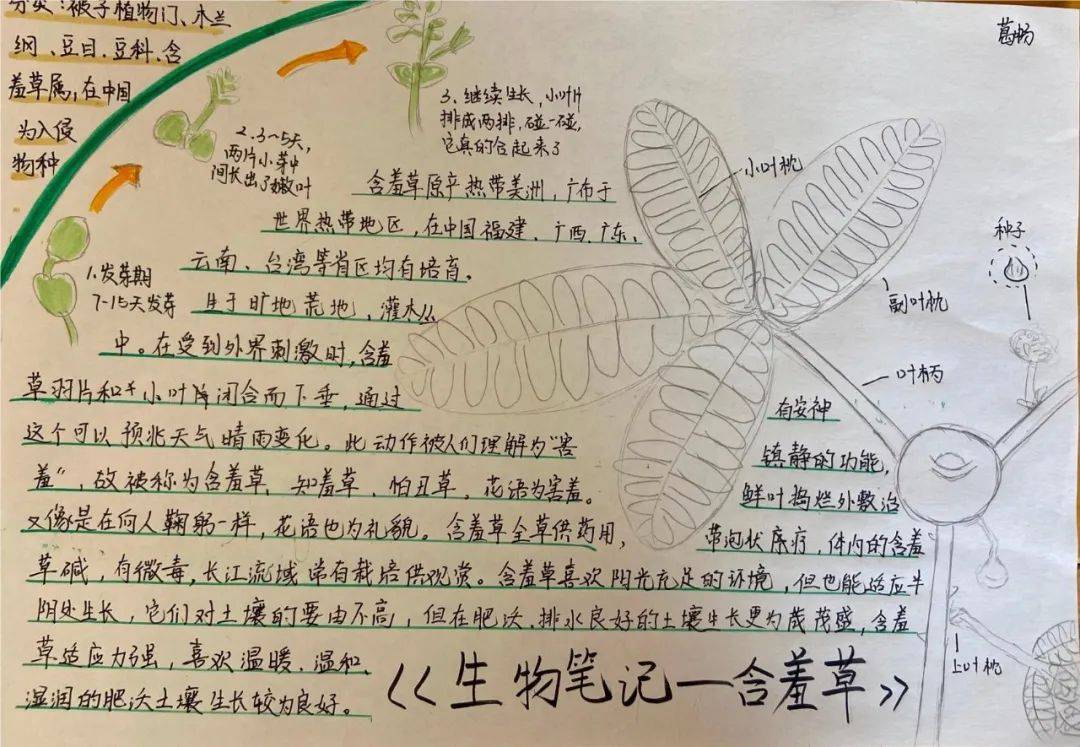 分类：被子植物门、木兰
纲、豆目、豆科、含
羞草属，在中国
为入侵
物种
1.发芽期
7-15天发芽
2.3～5天，
两片小芽中
间长出了嫩叶
3.继续生长，小叶片
排成两排，碰一碰，
它真的合起来了
葛畅
含羞草原产热带美洲，广布于
世界热带地区，在中国福建、广西、广东、
云南、台湾等省区均有培育。
生于旷地荒地，灌木丛
中。在受到外界刺激时，含羞
草羽片和小叶片闭合而下垂，通过
这个可以预兆天气晴雨变化。此动作被人们理解为“害
羞”，故被称为含羞草、知羞草、怕丑草。花语为害羞。
又像是在向人鞠躬一样，花语也为礼貌。含羞草全草供药用，
有安神
镇静的功能，
鲜叶捣烂外敷治
带泡状疹，体内的含羞
草碱，有微毒，长江流域常有栽培供观赏。含羞草喜欢阳光充足的环境，但也能适应半
阴处生长，它们对土壤的要由不高，但在肥沃、排水良好的土壤生长更为茂茂盛，含羞
草适应力强，喜欢温暖、温和、
湿润的肥沃土壤生长较为良好。
小叶枕
种子
副叶枕
叶柄
上叶枕
《生物笔记—含羞草》